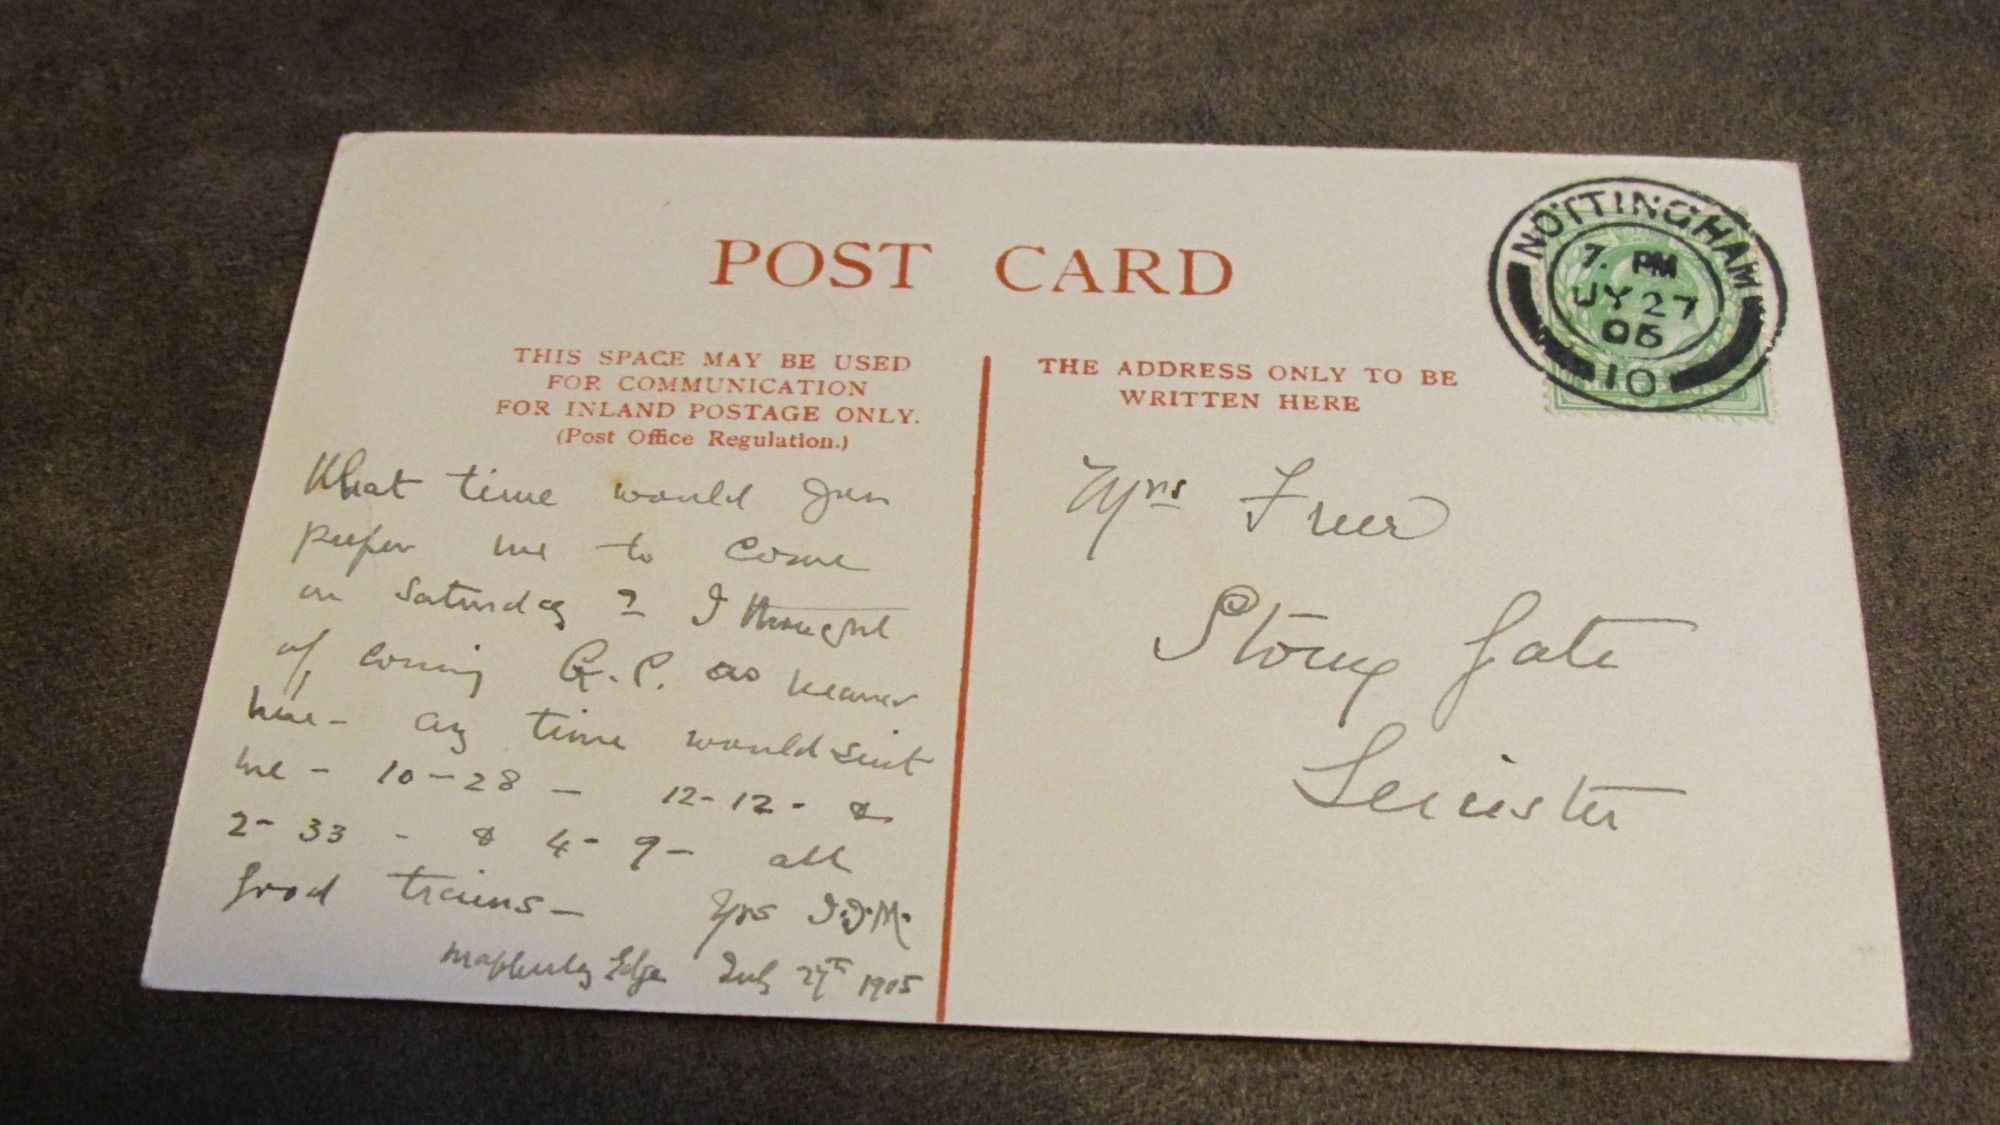 POST CARD
THIS SPACE MAY BE USED
FOR COMMUNICATION
FOR INLAND POSTAGE ONLY.
(Post Office Regulation.)
What time would you
prefer me to come
on Saturday? I thought
of coming G.C. as nearer
here - any time would suit
me - 10-28 - 12-12 - &
2-33 - & 4-9 - all
good trains -
Yrs J.J.M.
Mapperley Edge July 27th 1905
THE ADDRESS ONLY TO BE
WRITTEN HERE
Mrs Freer
Stony Gate
Leicester
NOTTINGHAM
7. PM
JY 27
05
10